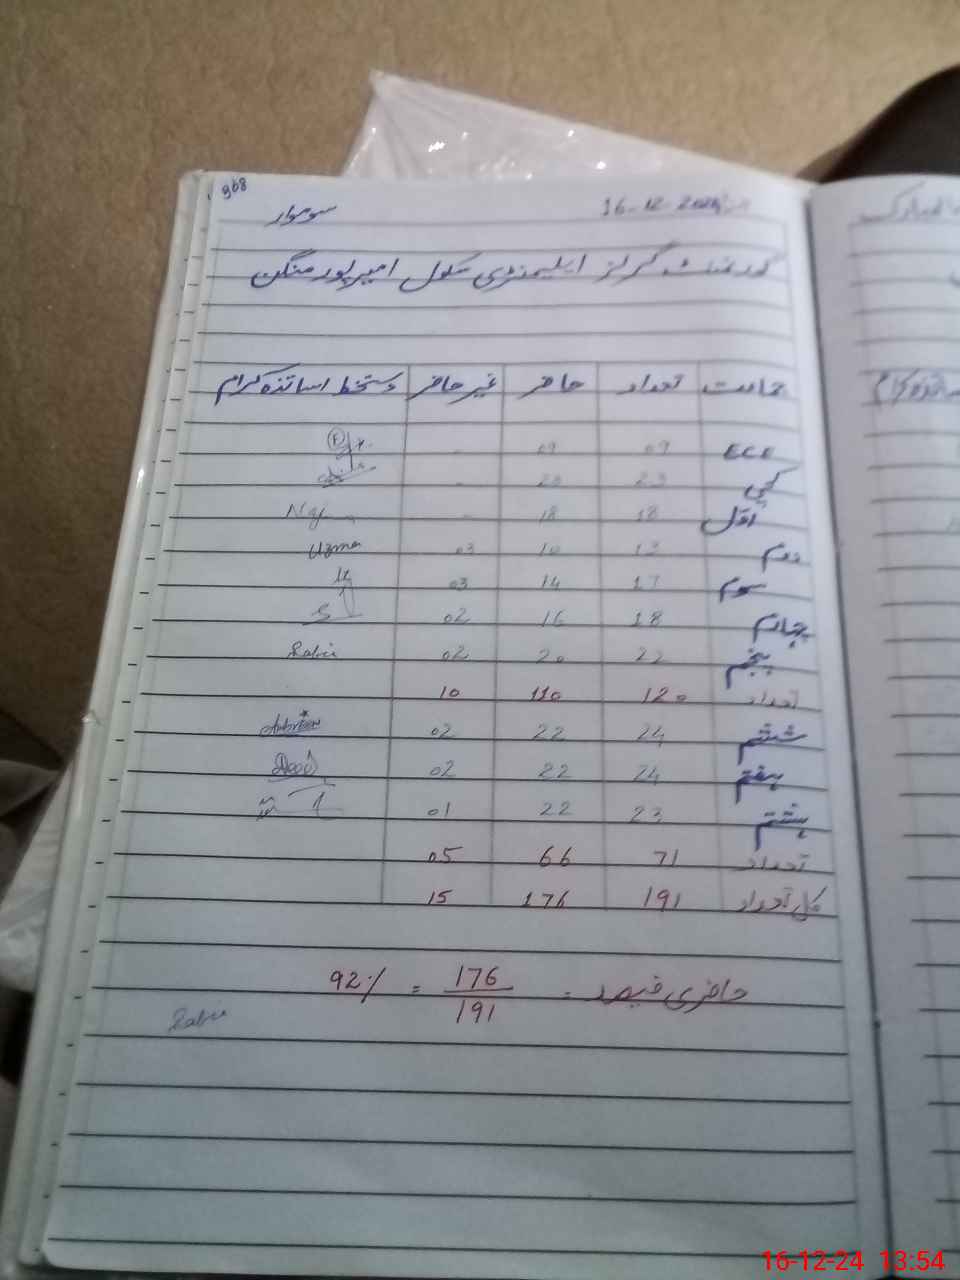 368
16-12-2024 سوموار
گورنمنٹ گرلز ایلیمنٹری سکول امیرپور منگن
جماعت تعداد حاضر غیر حاضر دستخط اساتذہ کرام
ECE 09 09 -
کچی 23 23 -
اول 18 18 -
دوم 13 10 03 Uzma
سوم 17 14 03
چہارم 18 16 02
پنجم 22 20 02 Rabia
تعداد 120 110 10
ششم 24 22 02
ہفتم 24 22 02
ہشتم 23 22 01
تعداد 71 66 05
کل تعداد 191 176 15
حاضری فیصد = 176/191 = 92%
Rabia
16-12-24 13:54